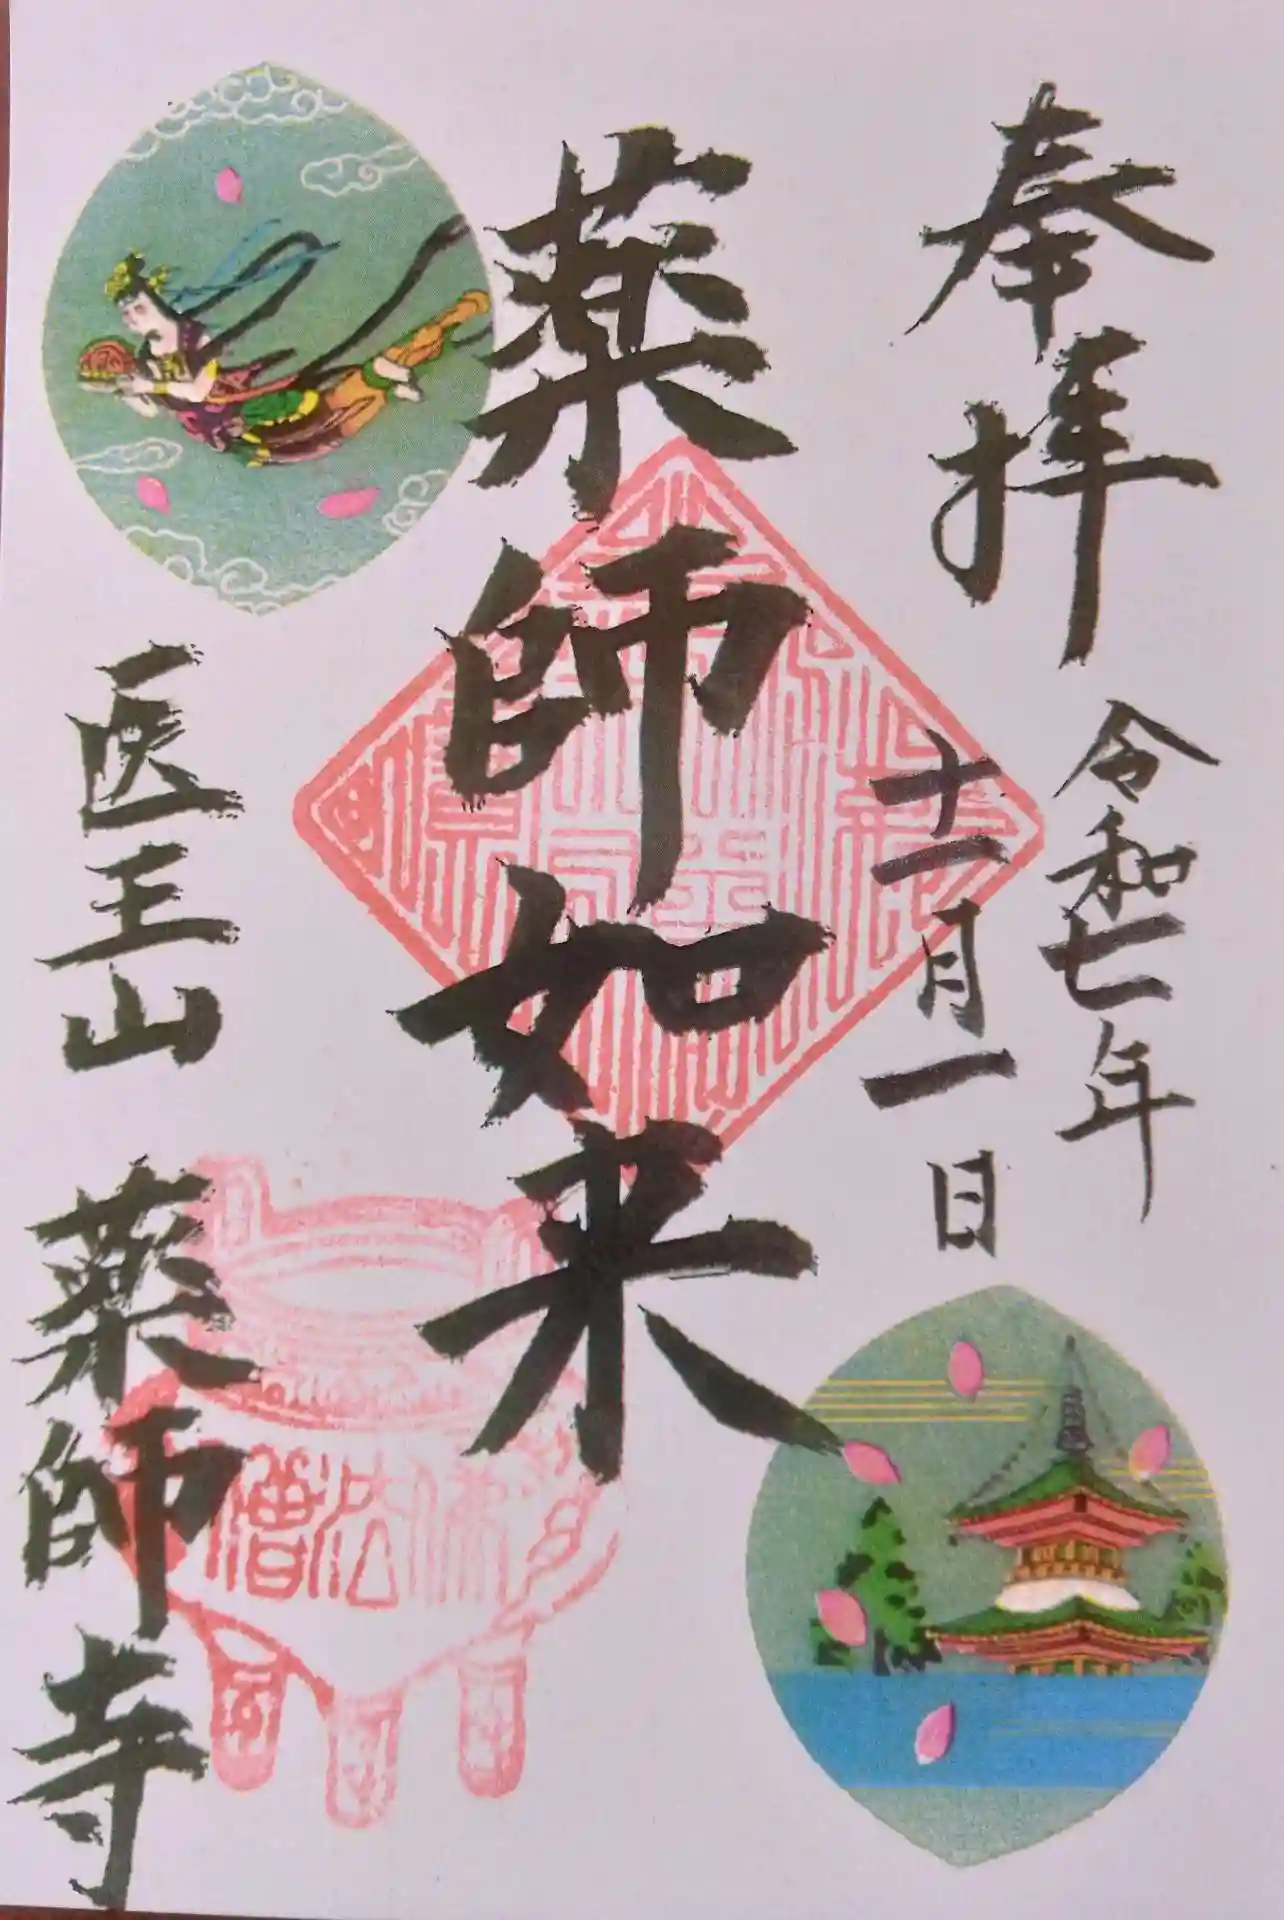 奉拝
令和七年
十一月一日
薬師如来
医王山
薬師寺
佛法僧